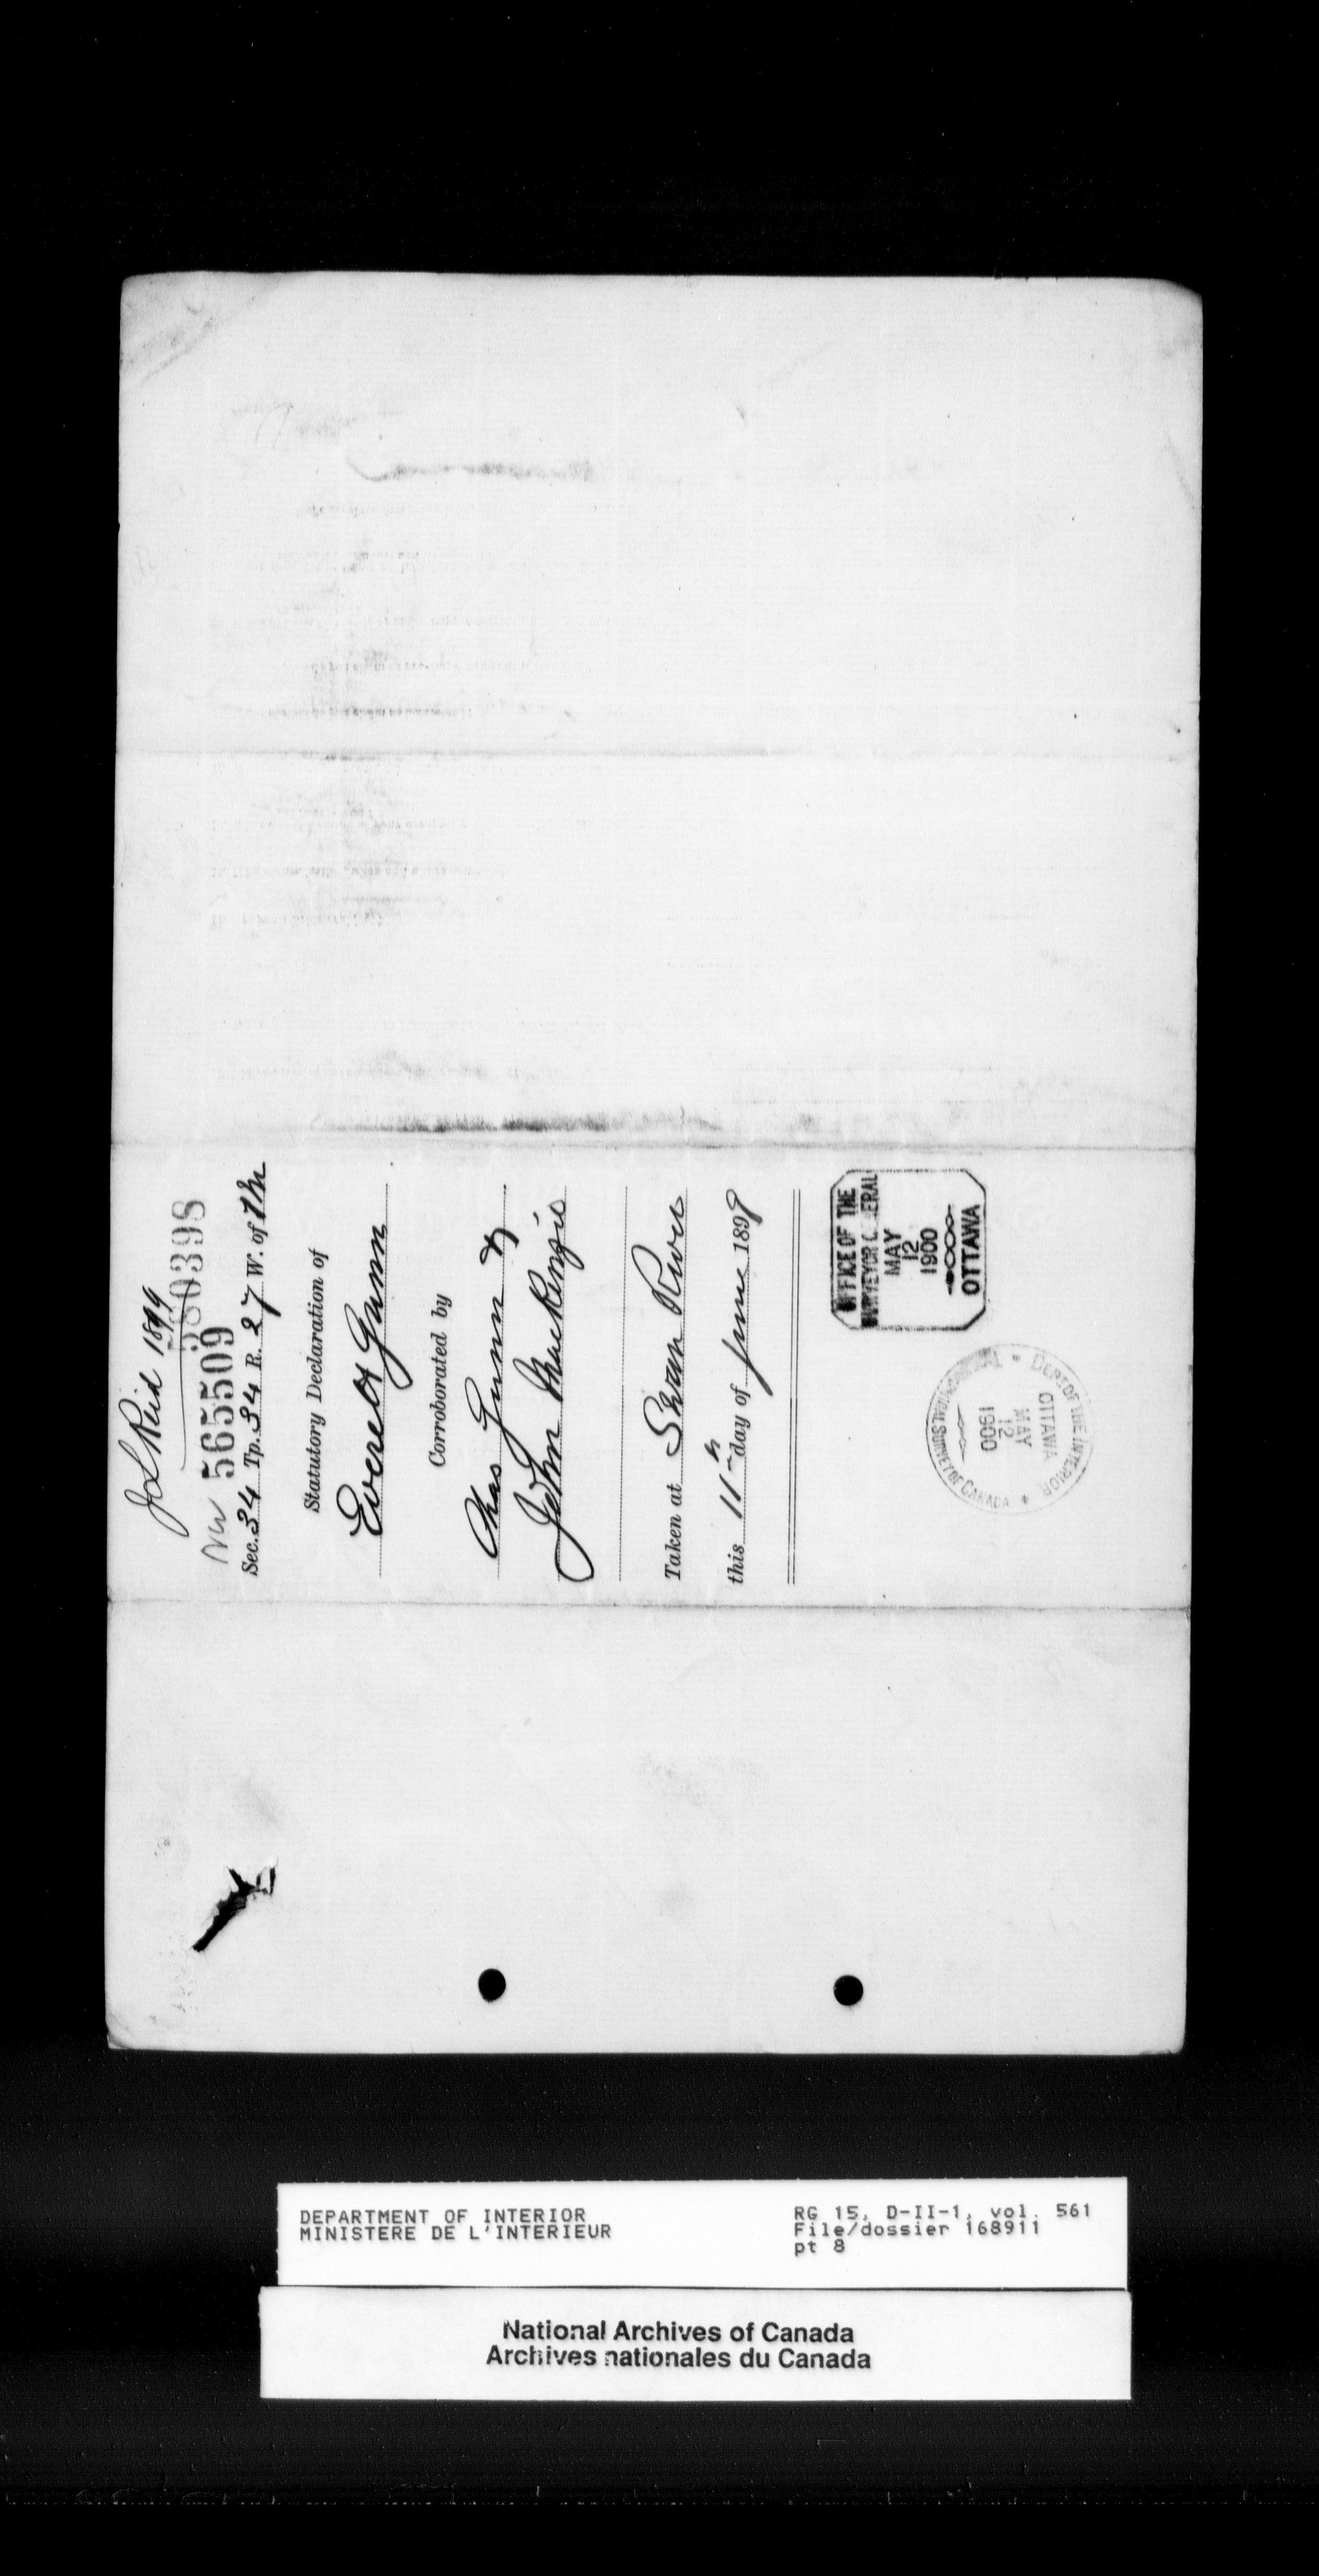 J L Reid 1899
580398
NW 565509
Sec. 34 Tp. 34 R. 27 W. of 1 M
Statutory Declaration of
Everett Gunn
Corroborated by
Chas Gunn &
John MacKenzie
Taken at Swan River
this 11th day of June 1899
OFFICE OF THE
SURVEYOR GENERAL
MAY
12
1900
OTTAWA
DEPT OF THE INTERIOR
OTTAWA
MAY
12
1900
SURVEY OF CANADA
DEPARTMENT OF INTERIOR
MINISTERE DE L'INTERIEUR
RG 15, D-II-1, vol. 561
File/dossier 168911
pt 8
National Archives of Canada
Archives nationales du Canada